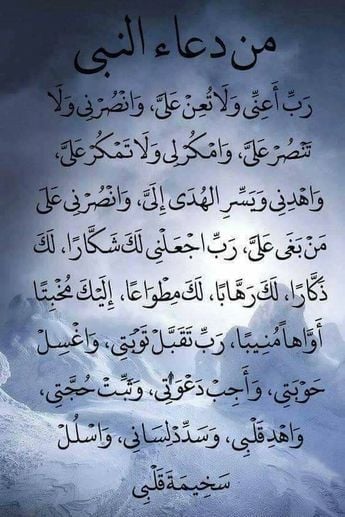 من دعاء النبى
رَبِّ أَعِنِّى وَلَا تُعِنْ عَلَىَّ، وَانْصُرْنِى وَلَا
تَنْصُرْ عَلَىَّ، وَامْكُرْ لِى وَلَا تَمْكُرْ عَلَىَّ،
وَاهْدِنِى وَيَسِّرِ الهُدَى إِلَىَّ، وَانْصُرْنِى عَلَى
مَنْ بَغَى عَلَىَّ، رَبِّ اجْعَلْنِى لَكَ شَكَّارًا، لَكَ
ذَكَّارًا، لَكَ رَهَّابًا، لَكَ مِطْوَاعًا، إِلَيْكَ مُخْبِتًا
أَوَّاهاً مُنِيبًا، رَبِّ تَقَبَّلْ تَوْبَتِى، وَاغْسِلْ
حَوْبَتِى، وَأَجِبْ دَعْوَتِى، وَثَبِّتْ حُجَّتِى،
وَاهْدِ قَلْبِى، وَسَدِّدْ لِسَانِى، وَاسْلُلْ
سَخِيمَةَ قَلْبِى